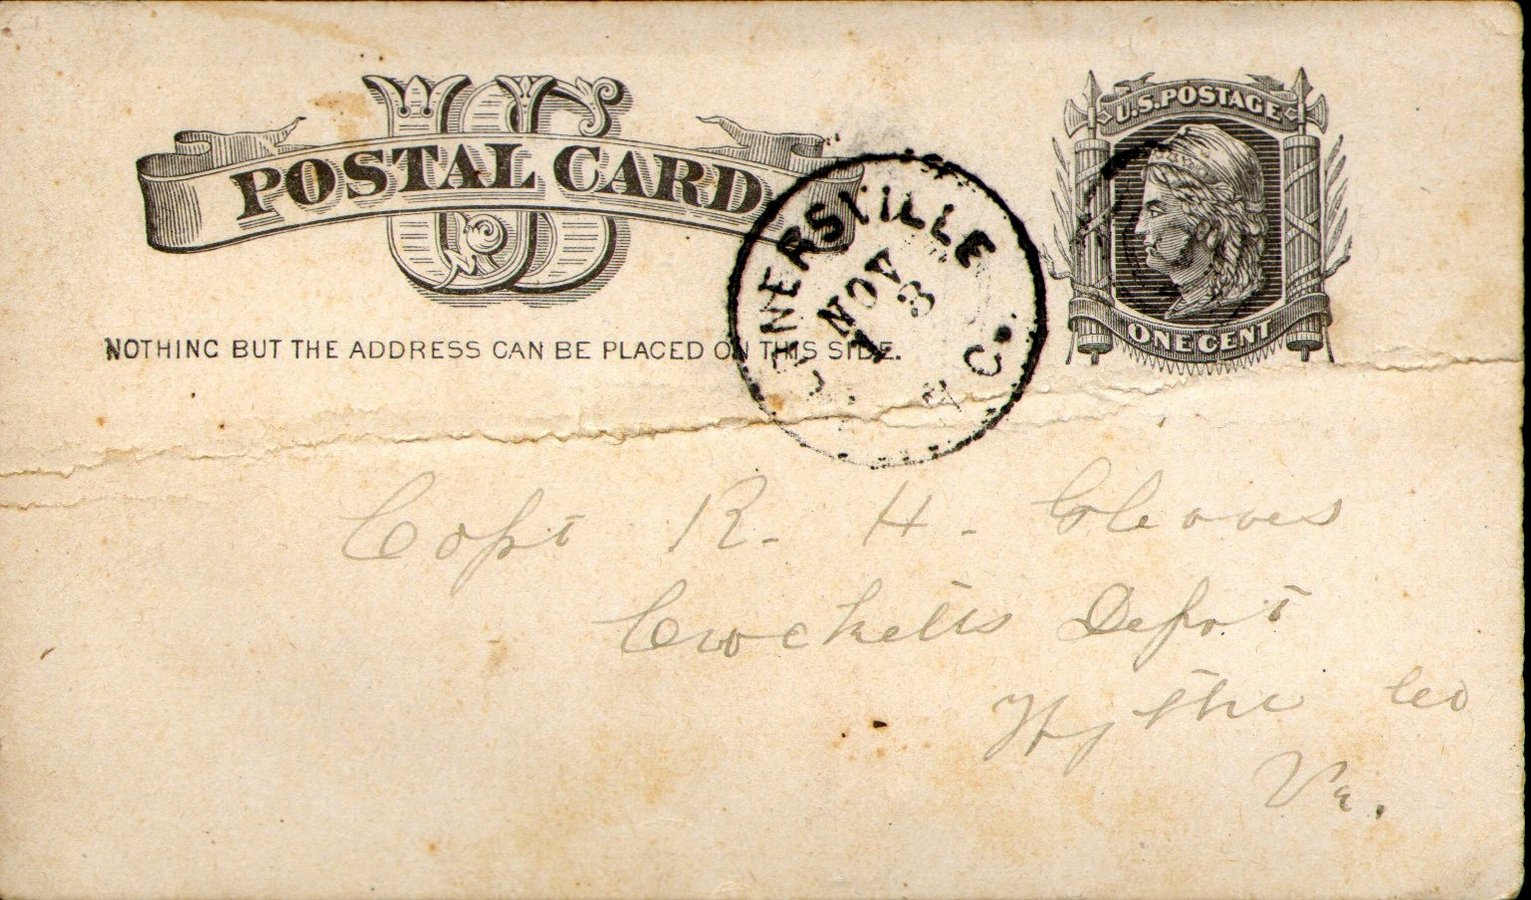 US
POSTAL CARD
U.S. POSTAGE
ONE CENT
NOTHING BUT THE ADDRESS CAN BE PLACED ON THIS SIDE.
NERSVILLE
NOV
13
Capt R. H. Gleaves
Crocketts Depot
Wythe Co
Va.